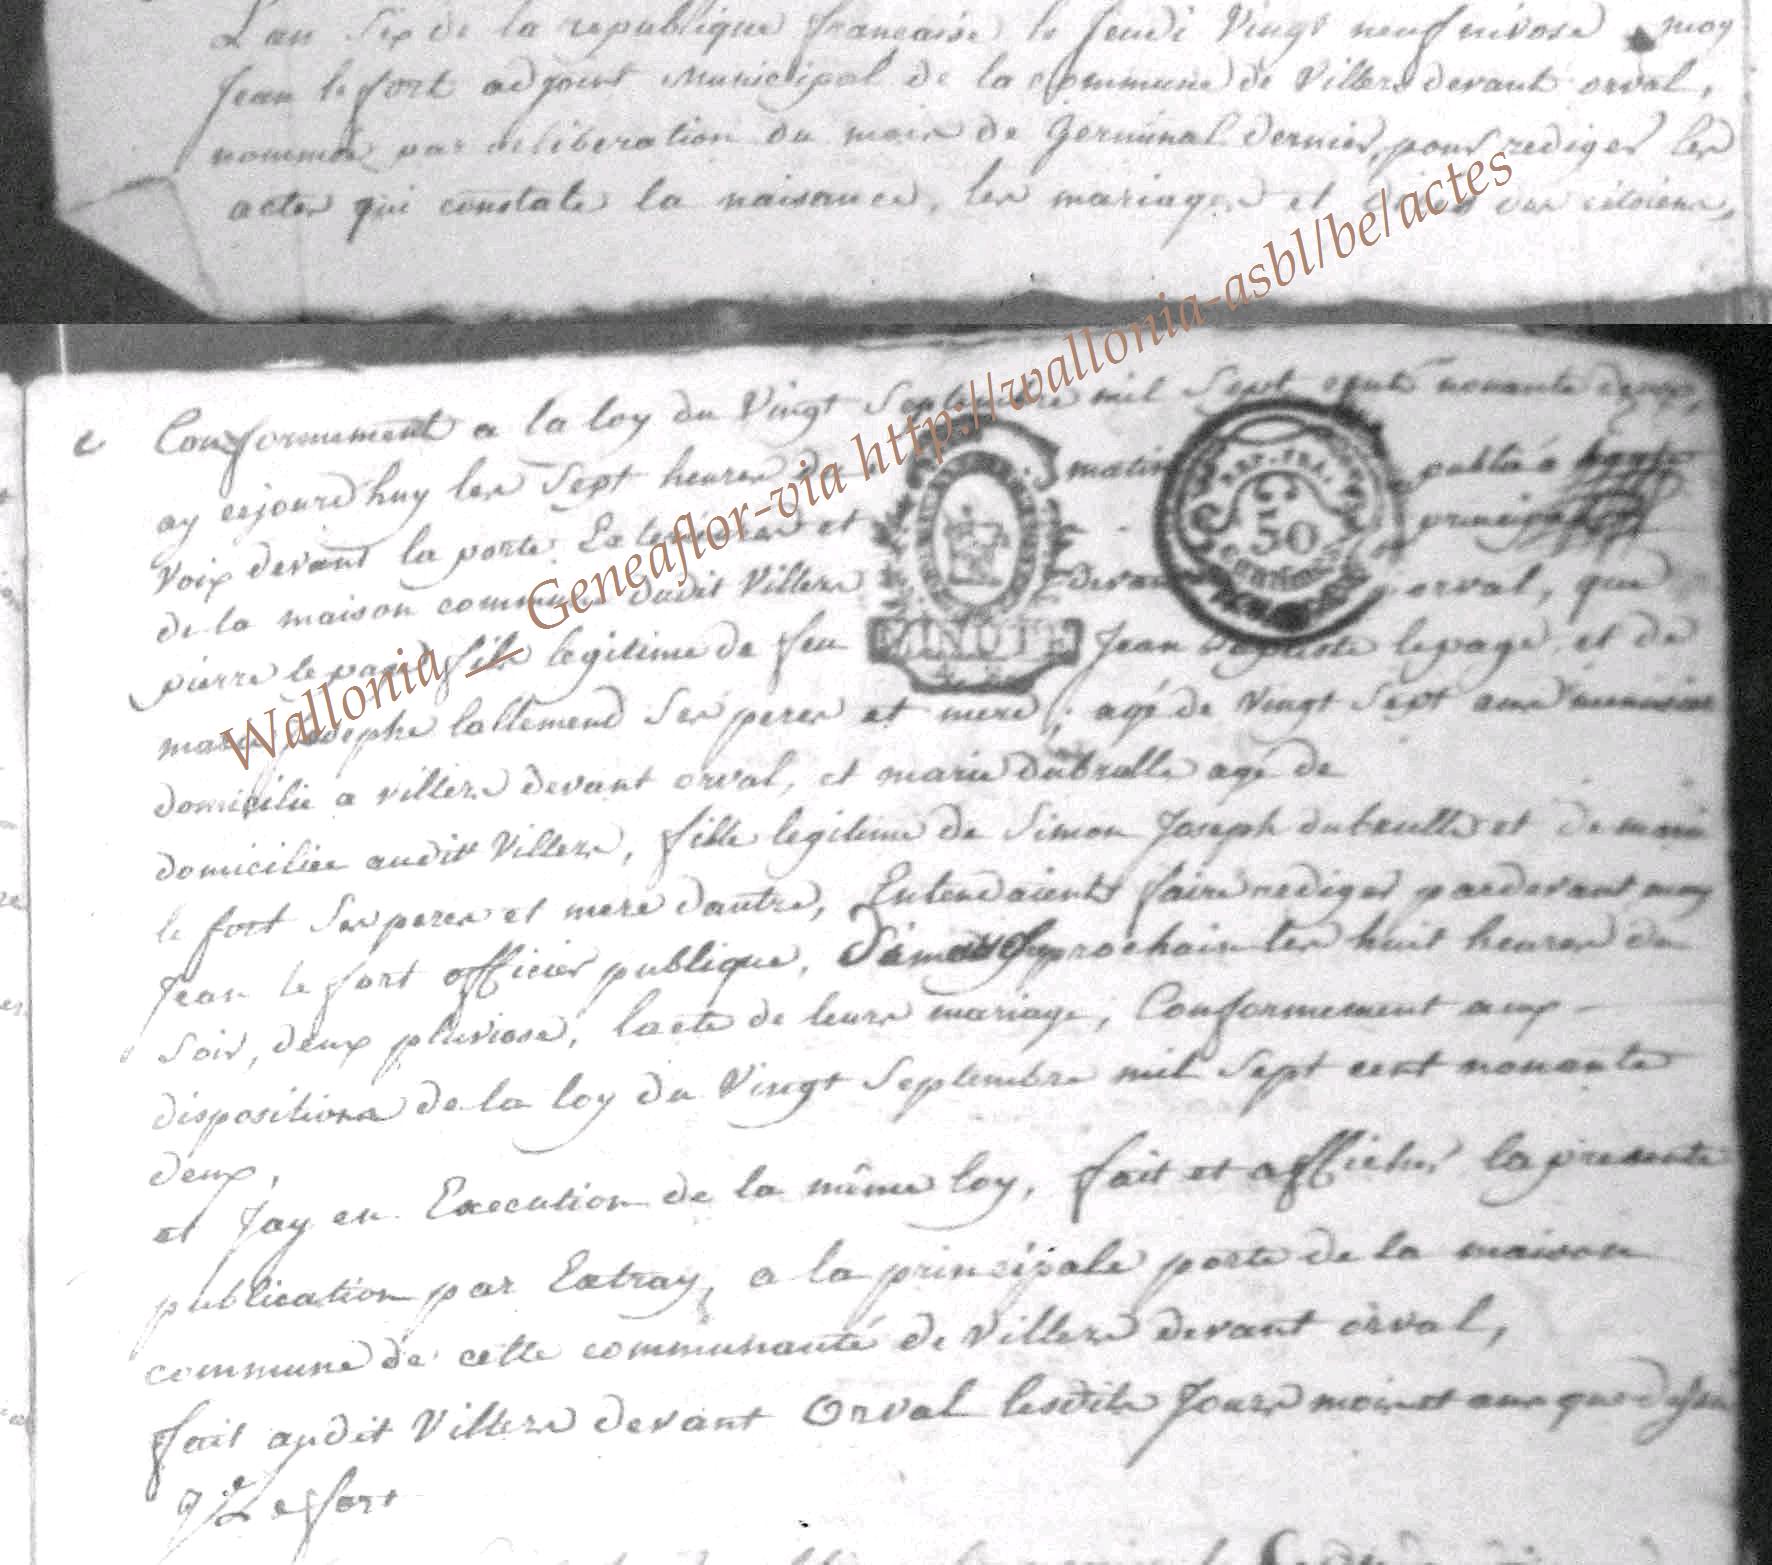 L'an Six de la republique francaise le Jeudi Vingt neuf nivose moy
Jean le fort adjoint Municipal de la commune de Villers devant orval,
nommé par deliberation du mois de Germinal dernier, pour rediger les
actes qui constate la naisance, les mariages et citoiens,
Conformement a la loy du Vingt Septembre mil Sept cent nonante deux,
ay aujourd'huy les Sept heures du matin publié a
Voix devant la porte Exterieure et principalle
de la maison commune dudit Villers devant orval, que
pierre le page fils legitime de feu Jean baptiste lepage et de
marie Josephe lallemend Ses peres et mere, agé de Vingt Sept ans
domicilie a villers devant orval, et marie dubrulle agé de
domiciliee audit Villers, fille legitime de Simon Joseph dubrulle et de marie
le fort Ses peres et mere dautre, Entendaient faire rediger pardevant moy
Jean le fort officier publique, prochain les huit heures du
Soir, deux pluviose, lacte de leurs mariage, Conformement aux
dispositions de la loy du Vingt Septembre mil Sept cent nonante
deux,
et Jay en Execution de la même loy, fait et afficher la presente
publication par Extray, a la principale porte de la maison
commune de cette communauté de Villers devant orval,
fait audit Villers devant Orval lesdits Jours mois et ans que dessus
J: Le fort
MINUTE
REP. FRA.
50
CENTIMES
Wallonia __ Geneaflor-via http://wallonia-asbl/be/actes